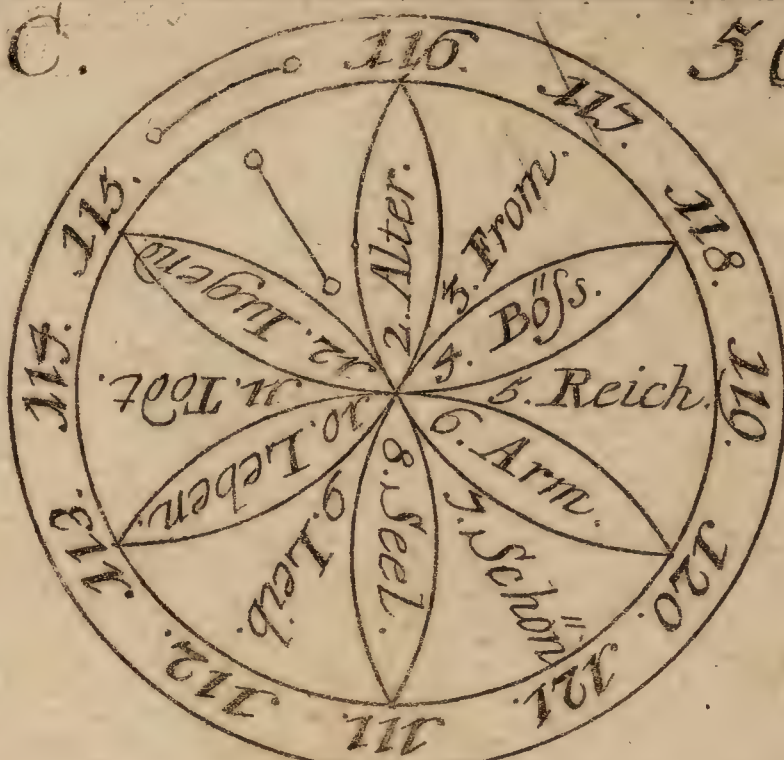 C.
5
116.
117.
118.
119.
120.
121.
111.
112.
113.
114.
115.
2. Alter.
3. From.
4. Böſs.
5. Reich.
6. Arm.
7. Schön
8. Seel.
9. Leib.
10. Leben.
11. Todt.
12. Iugend